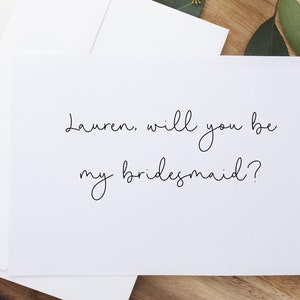 Lauren, will you be
my bridesmaid?